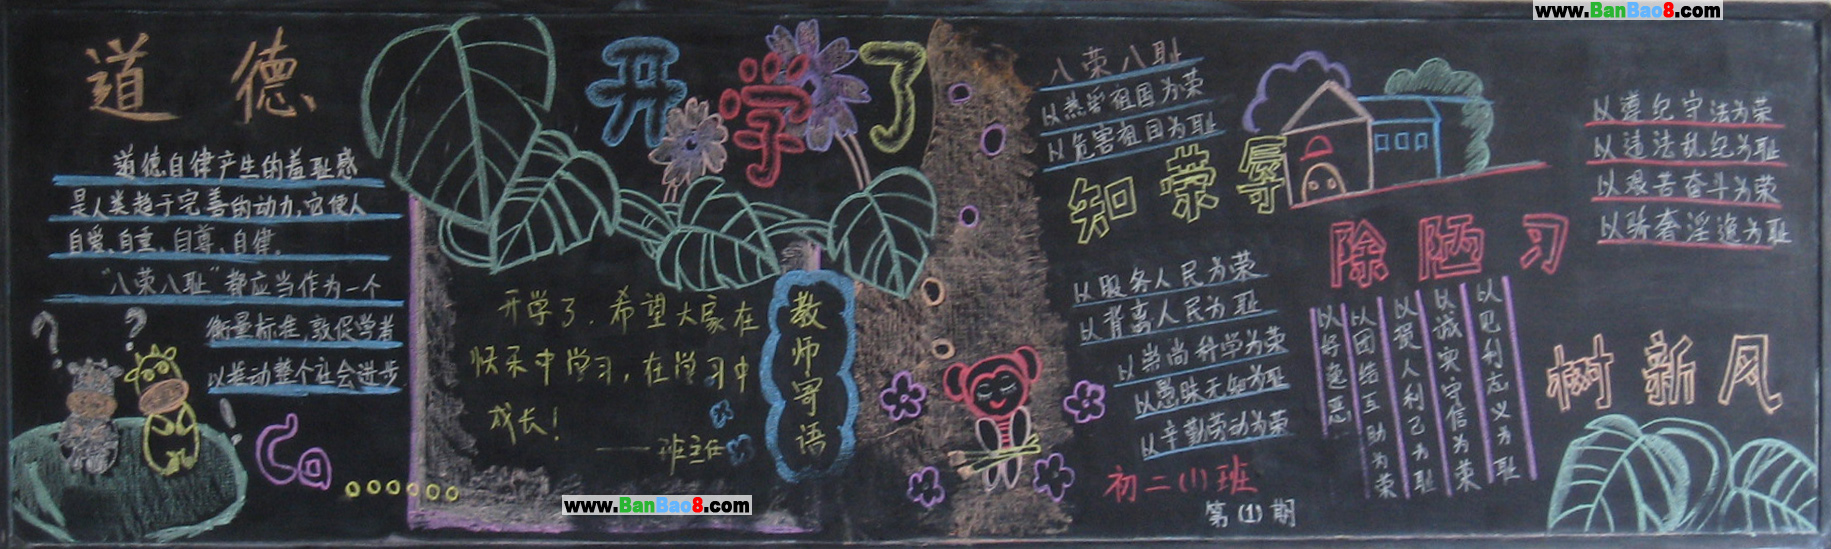 www.BanBao8.com
道德
道德自律产生的羞耻感
是人类趋于完善的动力,它使人
自爱、自重、自尊、自律。
“八荣八耻”都应当作为一个
衡量标准,敦促学者
以推动整个社会进步
开学了
开学了、希望大家在
快乐中学习,在学习中
成长!
——班主任
教师寄语
www.BanBao8.com
八荣八耻
以热爱祖国为荣
以危害祖国为耻
知荣辱
以服务人民为荣
以背离人民为耻
以崇尚科学为荣
以愚昧无知为耻
以辛勤劳动为荣
初二(1)班
第(1)期
除陋习
以好逸恶
以团结互助为荣
以损人利己为耻
以诚实守信为荣
以见利忘义为耻
以遵纪守法为荣
以违法乱纪为耻
以艰苦奋斗为荣
以骄奢淫逸为耻
树新风